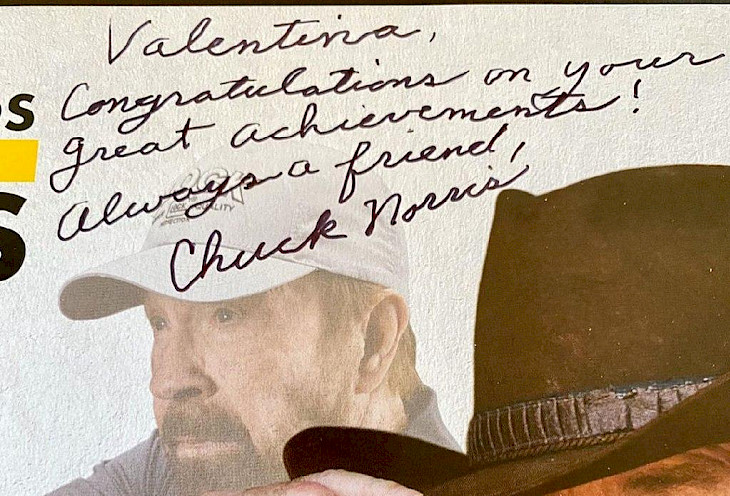 Valentina,
Congratulations on your
great achievements!
Always a friend,
Chuck Norris